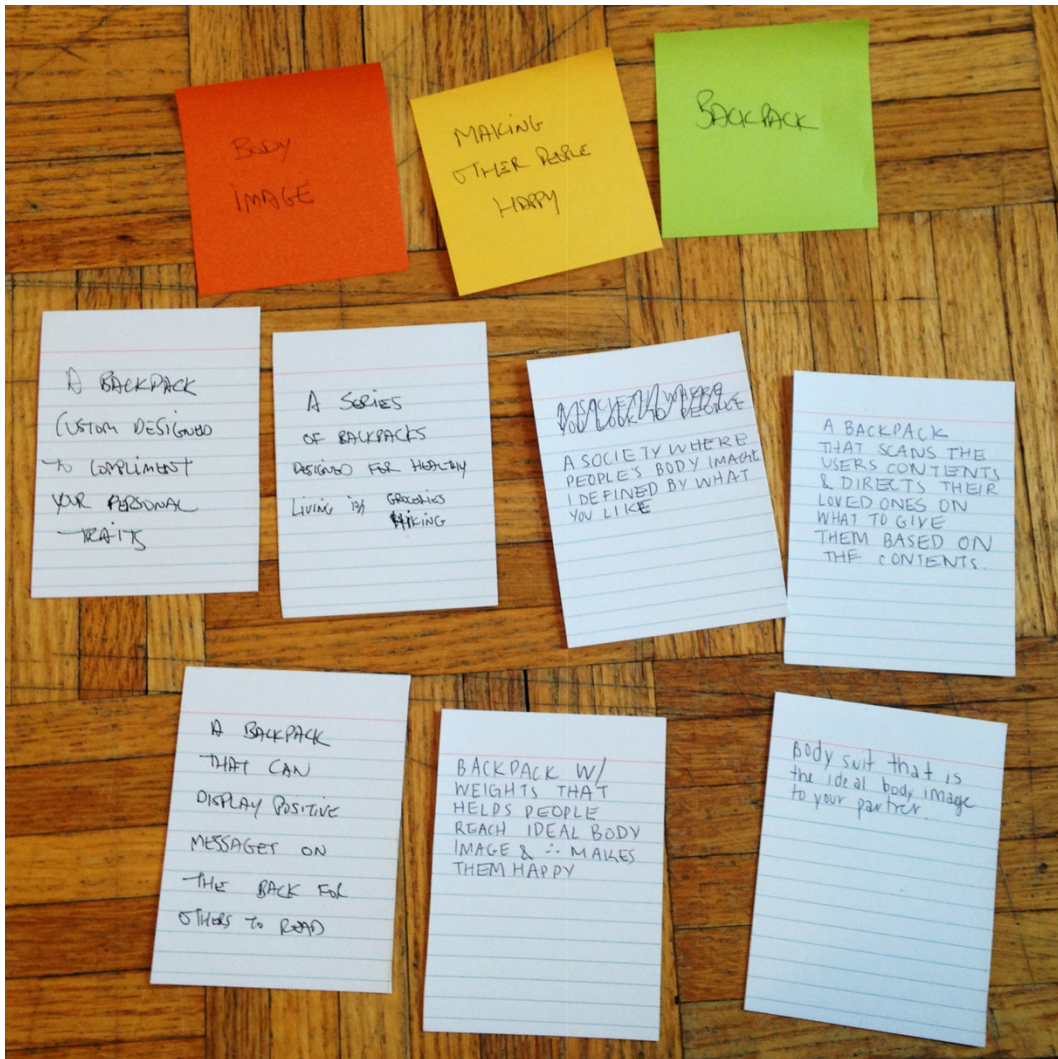 BODY
IMAGE
MAKING
OTHER PEOPLE
HAPPY
BACKPACK
A BACKPACK
CUSTOM DESIGNED
TO COMPLIMENT
YOUR PERSONAL
TRAITS
A SERIES
OF BACKPACKS
DESIGNED FOR HEALTHY
LIVING GROCERIES
HIKING
A SOCIETY WHERE
PEOPLE'S BODY IMAGE
I DEFINED BY WHAT
YOU LIKE
A BACKPACK
THAT SCANS THE
USERS CONTENTS
& DIRECTS THEIR
LOVED ONES ON
WHAT TO GIVE
THEM BASED ON
THE CONTENTS.
A BACKPACK
THAT CAN
DISPLAY POSITIVE
MESSAGES ON
THE BACK FOR
OTHERS TO READ
BACKPACK W/
WEIGHTS THAT
HELPS PEOPLE
REACH IDEAL BODY
IMAGE & ∴ MAKES
THEM HAPPY
Body suit that is
the ideal body image
to your partner.